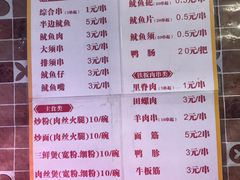 综合串(10串起) 1元/串
半边鱿鱼 5元/串
鱿鱼肉 3元/串
大须串 3元/串
排须串 3元/串
鱿鱼仔 3元/串
鱿鱼嘴 3元/串
主食类
炒粉(肉丝火腿)10/碗
炒面(肉丝火腿)10/碗
三鲜煲(宽粉.细粉)10/碗
肉丝煲(宽粉.细粉)10/碗
鱿鱼片 0.5元/串
鱿鱼须 0.5元/串
鸭肠 2元/把
铁板肉串类
里脊肉(10串起) 1元/串
田螺肉 3元/串
羊肉串 2元/串
面筋 5元2串
鸭胗 3元/串
牛板筋 3元/串